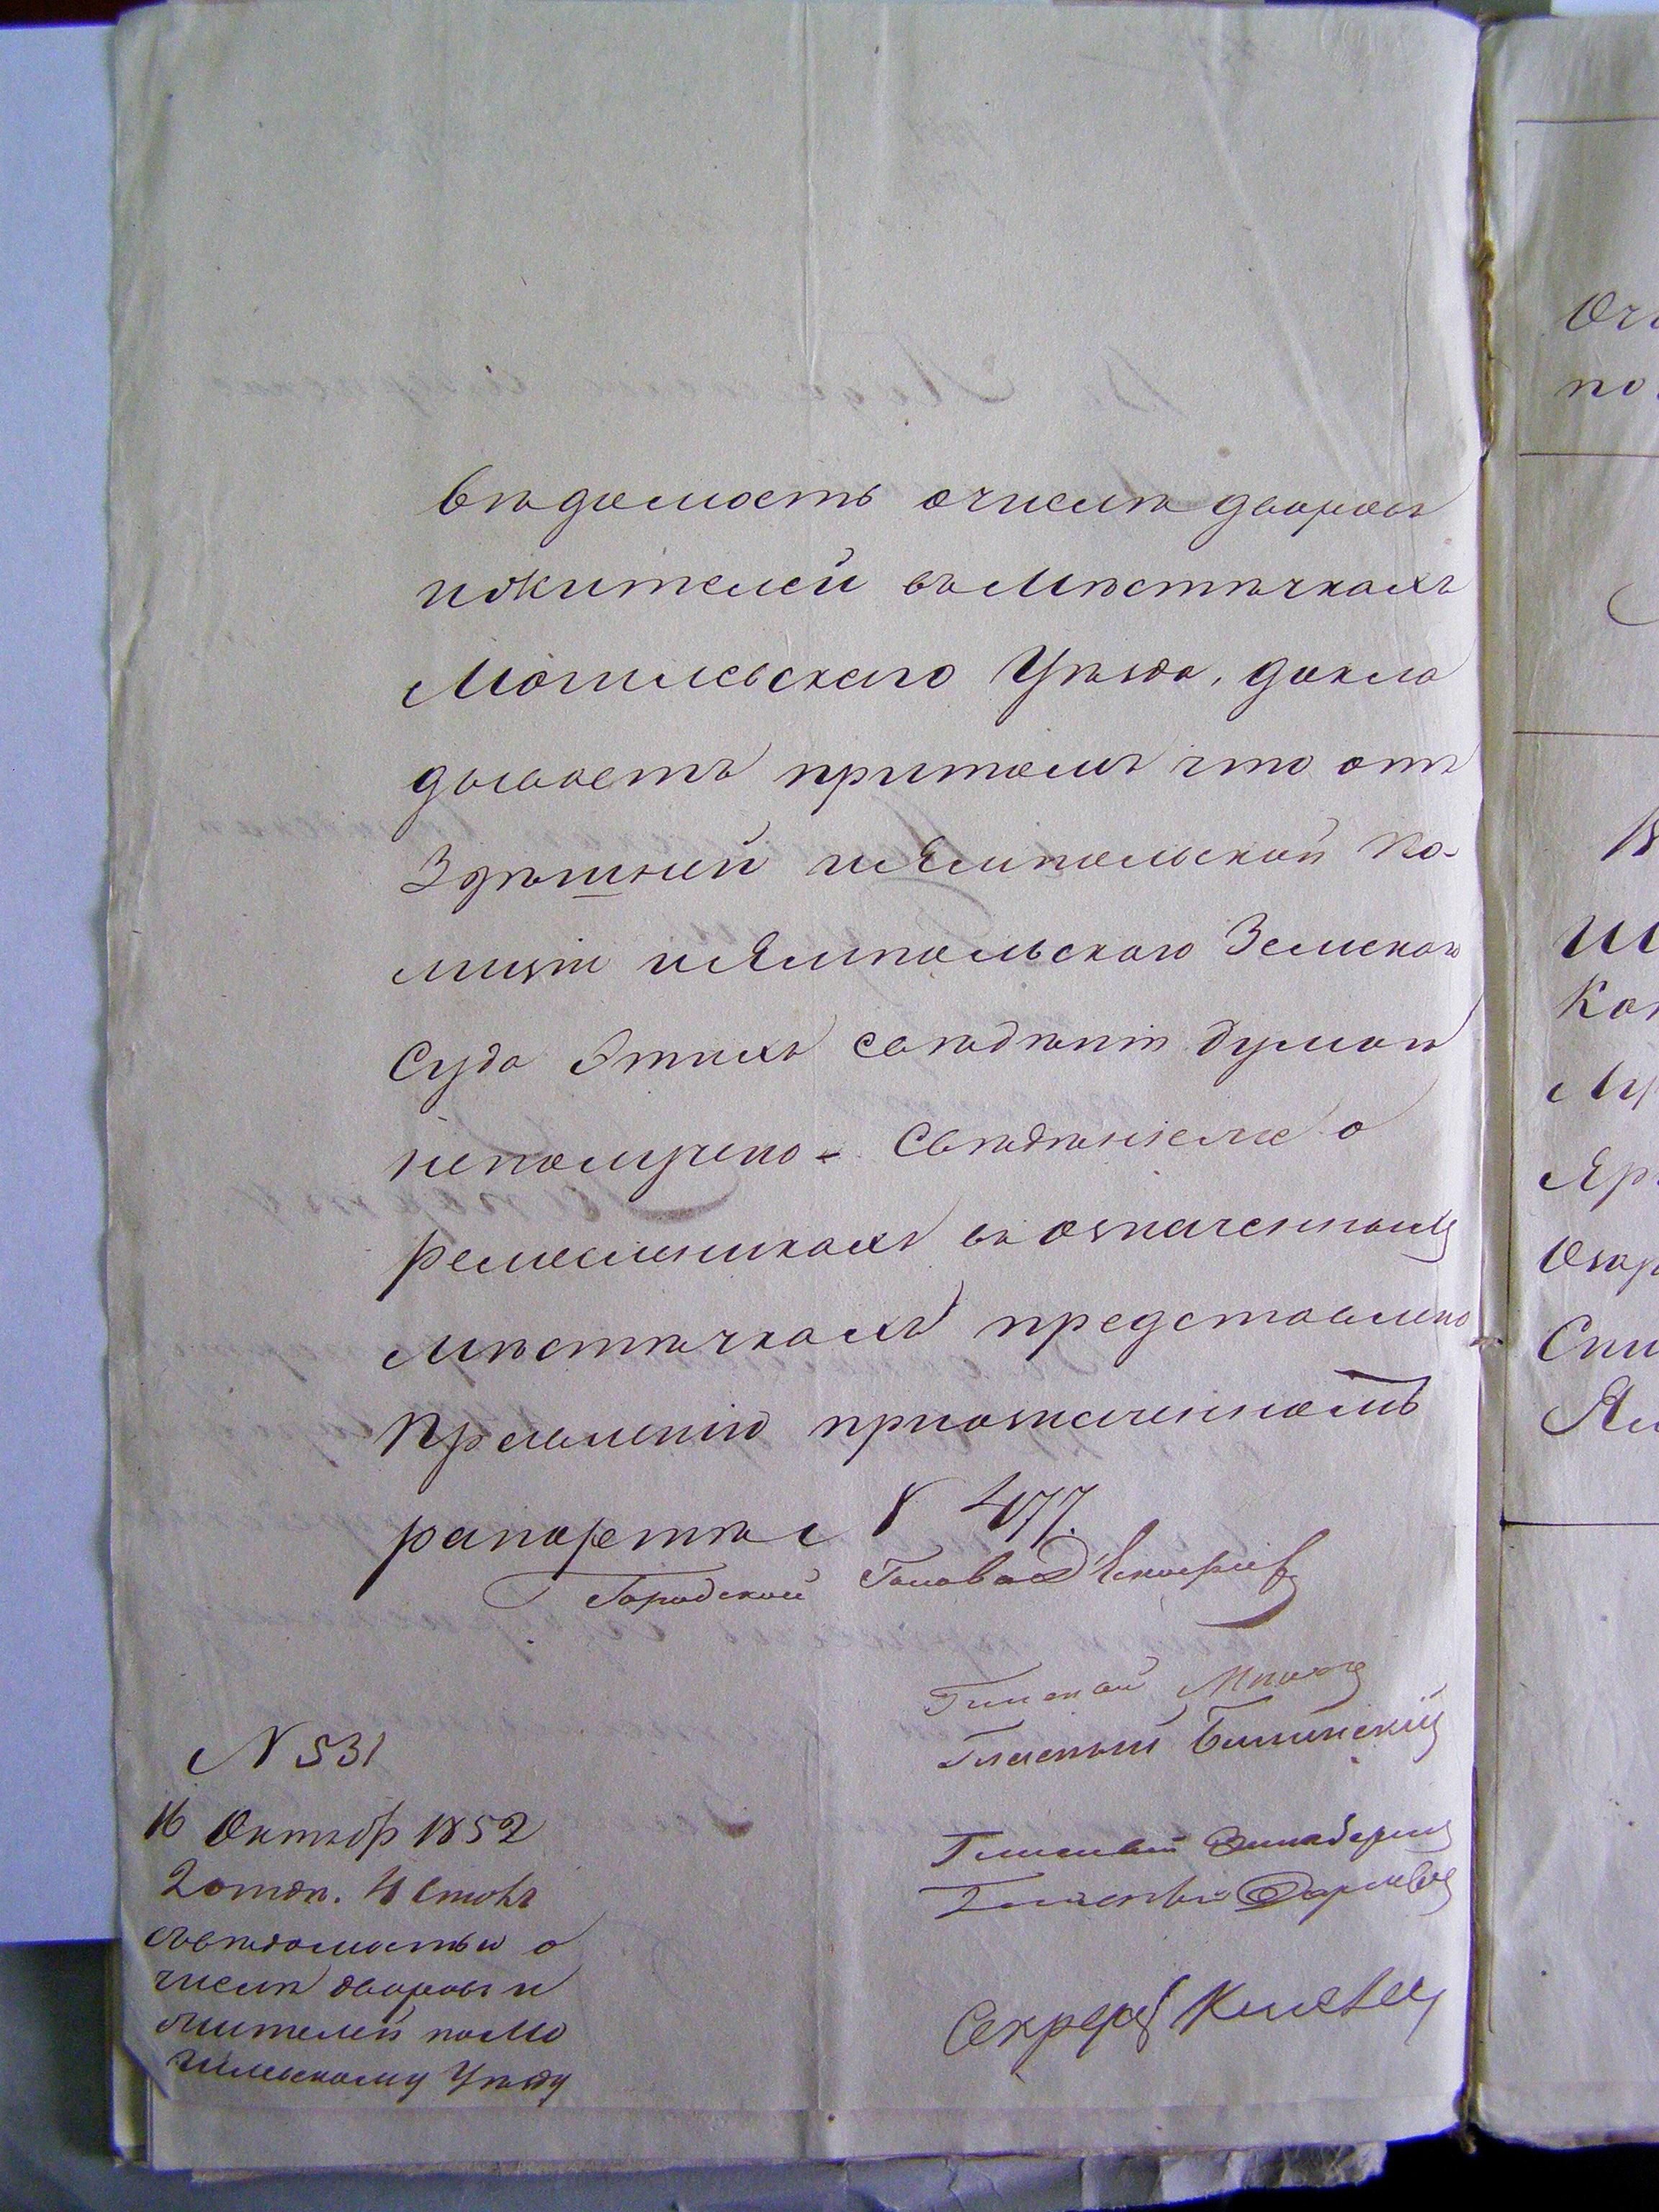 вѣдомость очислѣ дворовъ
ижителей въ Мѣстѣчкахъ
Могилевскаго Уѣзда, докла
дываетъ притомъ что отъ
Здѣшней иЯмпольской Ко-
миѕіи иЯмпольскаго Земскаго
Суда Этихъ свѣдѣній Думою
неполучено – Свѣдѣніеже о
ремесленикахъ въ означенныхъ
мѣстѣчкахъ представлено
Правленію приозначенномъ
рапортѣ с № 477.
Городской Голова
Гласный
Гласный Билинскій
Гласный
Гласный
Секретарь
N 531
16 Октябр 1852
2 отдѣ. 4 Столъ
свѣдомостью о
числѣ дворовъ и
жителей поМо
гилевскому Уѣзду
Очи
по
Ка
Му
Яр
Озар
Сни
Ям